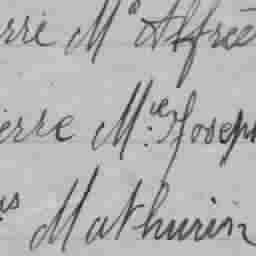 erre Mo Alfre
ierre M.ie Joseph
us Mathurin